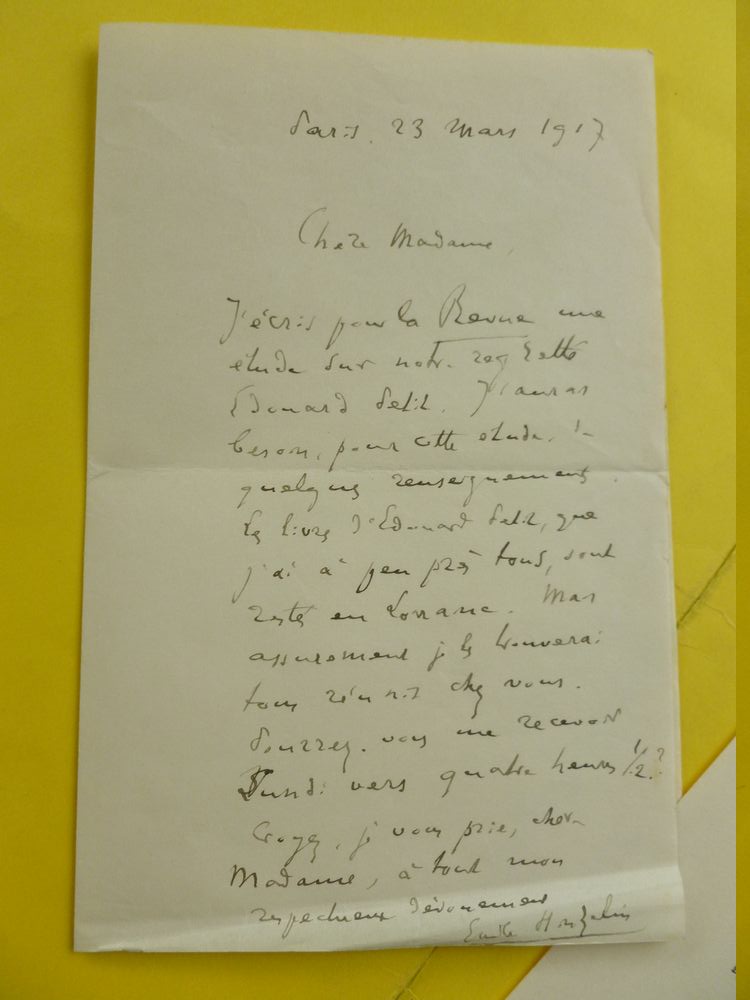 Paris, 23 Mars 1917
Chère Madame,
J'écris pour la Revue une
étude sur notre regretté
Edouard Petit. J'aurais
besoin, pour cette étude, de
quelques renseignements.
Les livres d'Edouard Petit, que
j'ai à peu près tous, sont
restés en Lorraine. Mais
assurément je les trouverai
tous réunis chez vous.
Pourrez-vous me recevoir
Lundi vers quatre heures 1/2 ?
Croyez, je vous prie, chère
Madame, à tout mon
respectueux dévouement
Emile Hinzelin